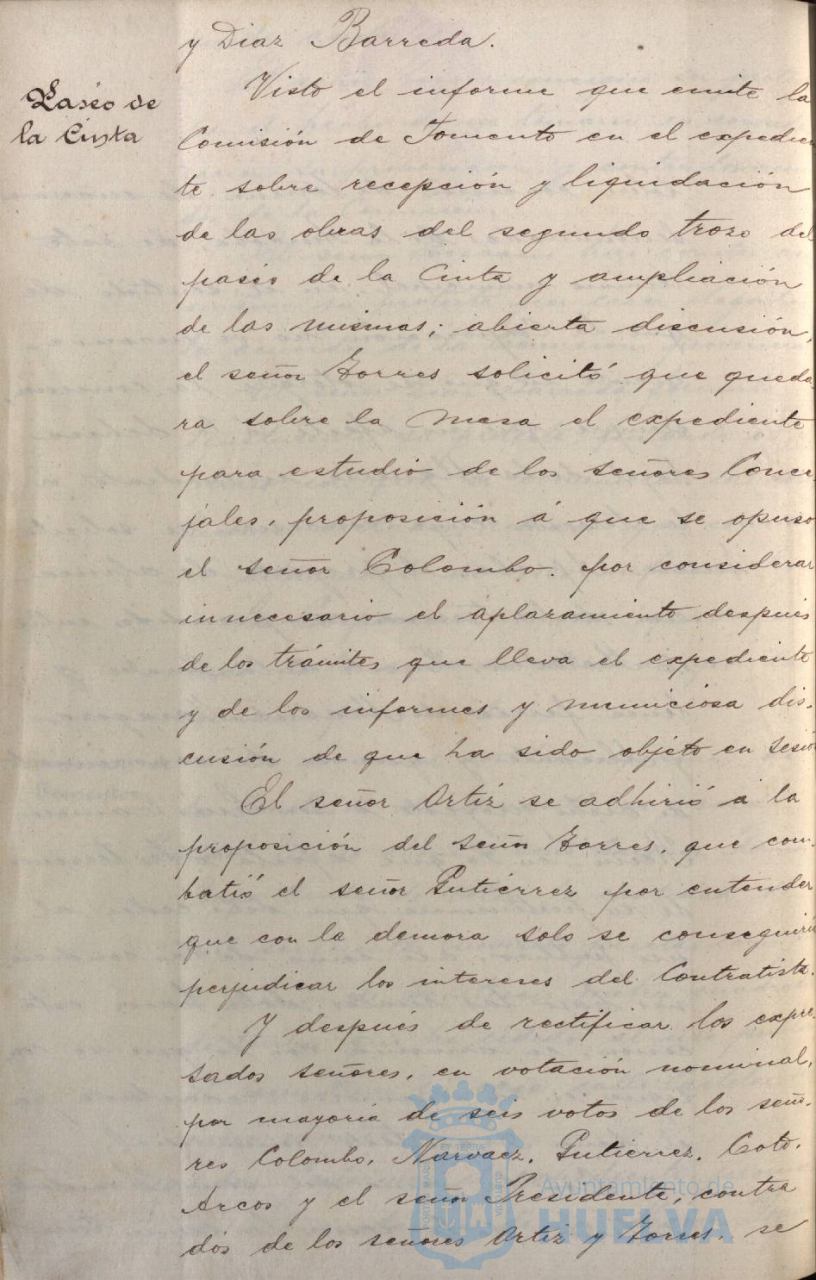 y Diaz Barreda.
Paseo de
la Cinta
Visto el informe que emite la
Comisión de Fomento en el expedien
te sobre recepción y liquidación
de las obras del segundo trozo del
paseo de la Cinta y ampliación
de las mismas; abierta discusión,
el señor Torres solicitó que queda
ra sobre la mesa el expediente
para estudio de los señores Conce-
jales, proposición á que se opuso
el señor Colombo, por considerar
innecesario el aplazamiento despues
de los trámites que lleva el expediente
y de los informes y minuciosa dis-
cusión de que ha sido objeto en sesión
El señor Ortiz se adhirió á la
proposición del señor Torres, que com-
batió el señor Gutiérrez por entender
que con la demora solo se conseguiría
perjudicar los intereses del Contratista.
Y después de rectificar los expre-
sados señores, en votación nominal,
por mayoría de seis votos de los seño-
res Colombo, Narvaez, Gutierrez, Coto,
Arcos y el señor Presidente, contra
dos de los señores Ortiz y Torres, se
Ayuntamiento de
HUELVA